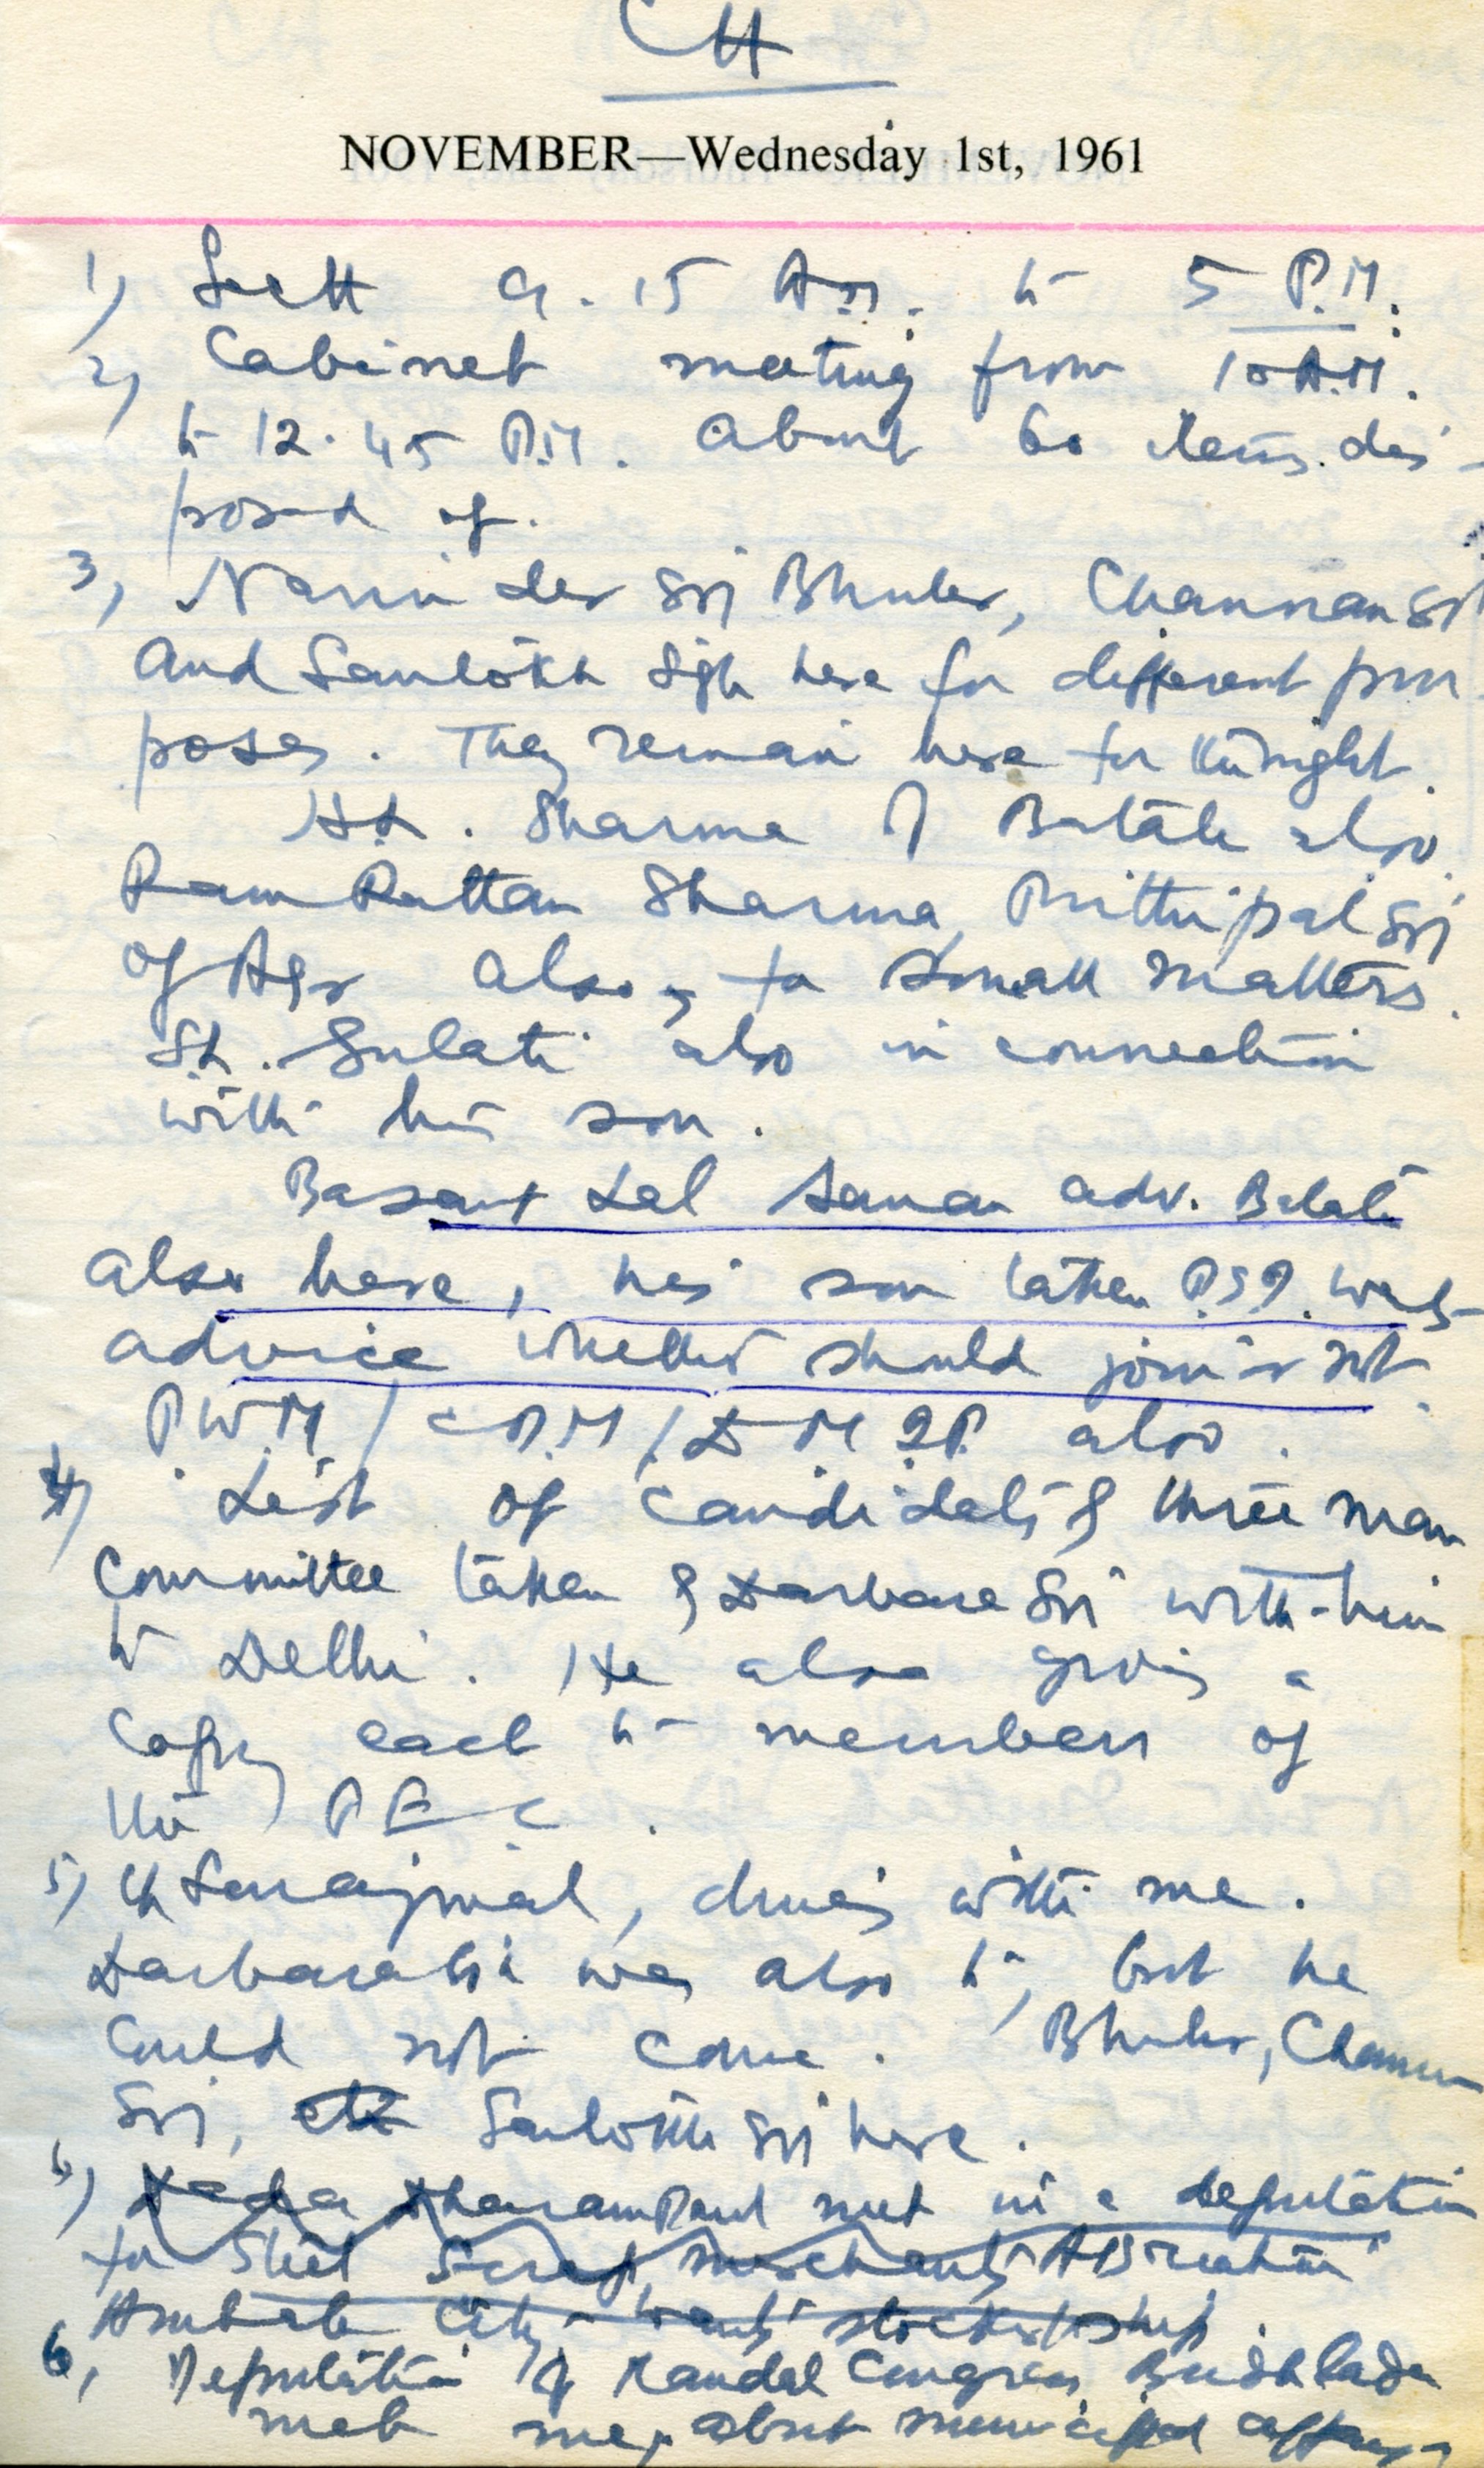 CH
NOVEMBER—Wednesday 1st, 1961
1) Sectt 9.15 A.M. to 5 P.M.
2) Cabinet meeting from 10 A.M.
to 12.45 P.M. About 60 items dis-
posed of.
3) Narinder Sgi Bhuler, Channan Sgi
and Santokh Sgh here for different pur
poses. They remain here for the night.
H.L. Sharma of Batala also.
Ram Rattan Sharma, Prithipal Sgi
of Asr also, for small matters.
Sh. Gulati also in connection
with his son.
Basant Lal Saman adv. Batala
also here, his son taken P.S.P. wants
advice whether should join or not.
P.W.M / C.P.M / D M I.P. also.
4) List of candidates of three man
Committee taken by Darbara Sgi with him
to Delhi. He also giving a
copy each to members of
the P E C.
5) Ch Surajmal, dines with me.
Darbara Sgi was also to, but he
could not come. Bhuler, Channan
Sgi, Santokh Sgi here.
6) Dharam met in a deputation
for Steel Scrap merchants Association
Ambala City - wants stockistship.
6, Deputation of Mandal Congress Budhlada
met me, about municipal affairs